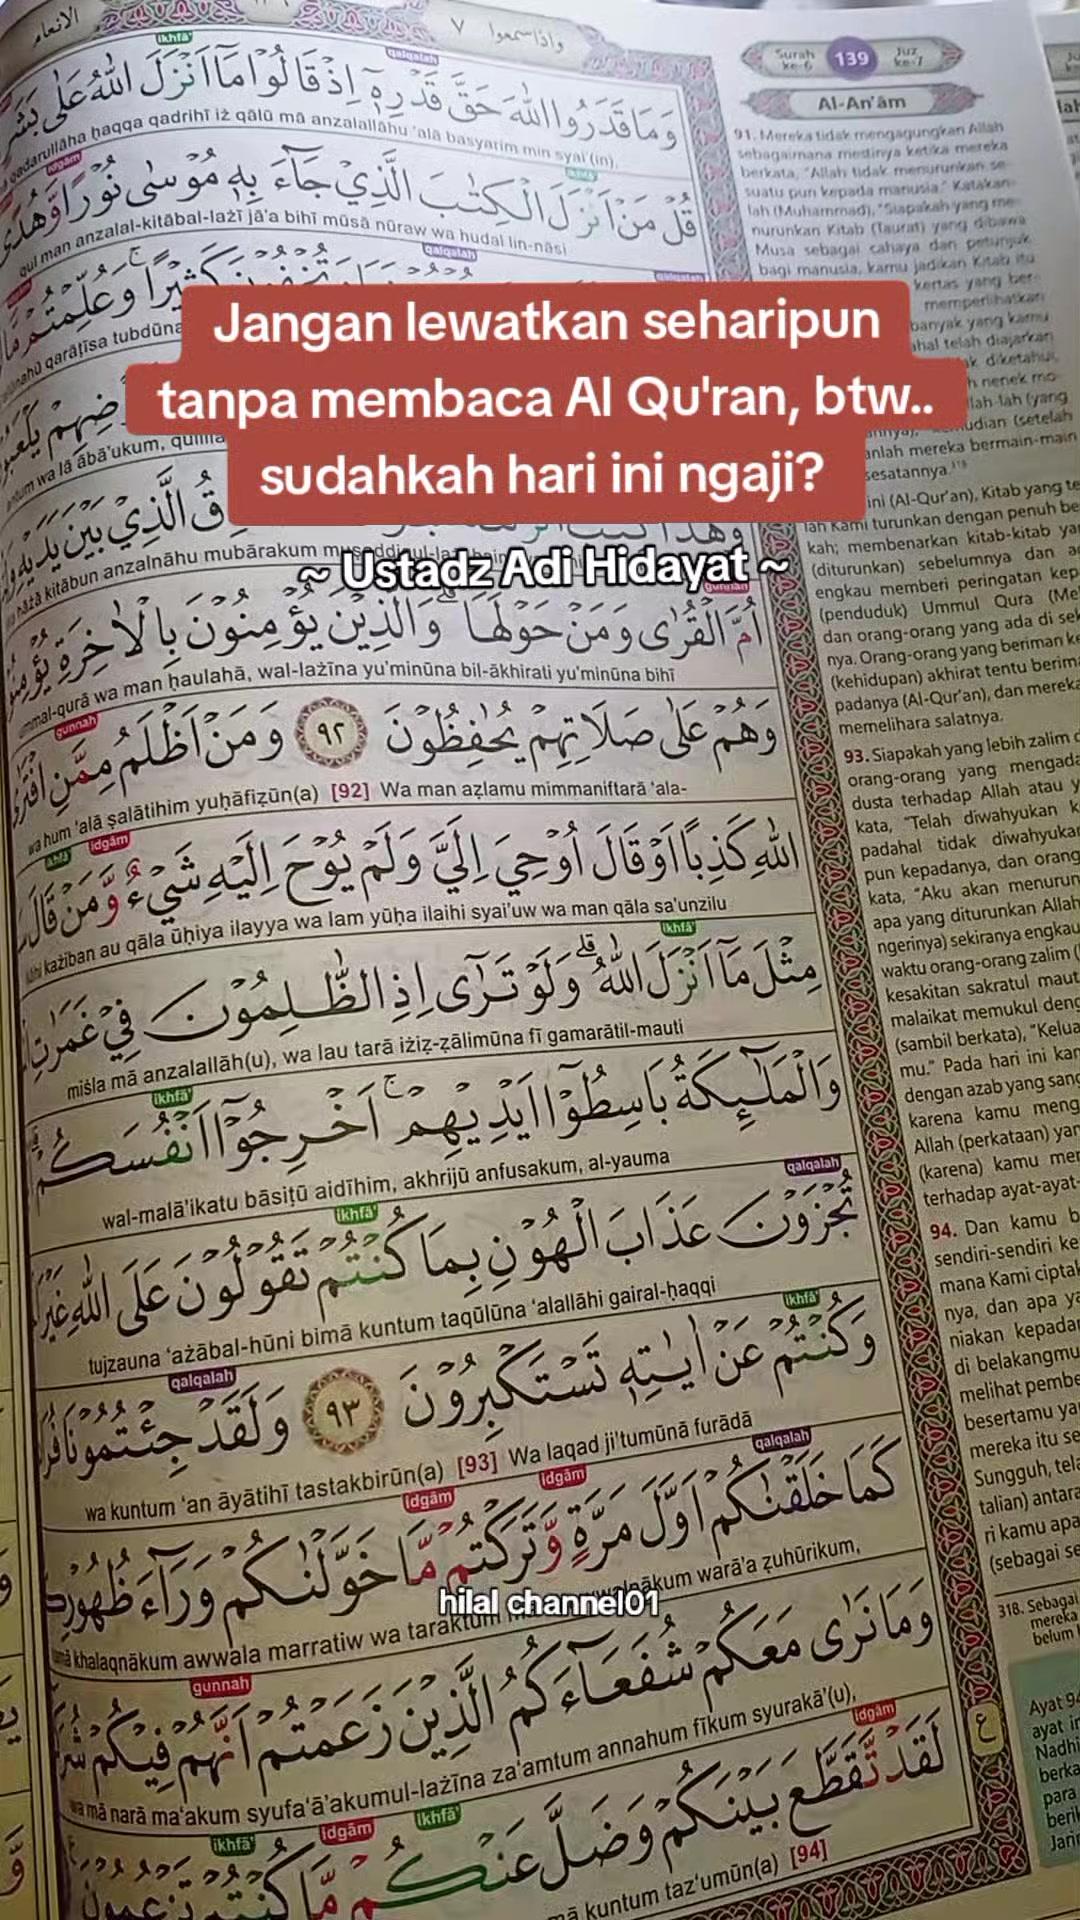 الانعام
واذاسمعوا ٧
Surah ke-6 139 Juz ke-7
Al-An'ām
ikhfā' qalqalah
وَمَا قَدَرُوا اللّٰهَ حَقَّ قَدْرِهٖٓ اِذْ قَالُوْا مَآ اَنْزَلَ اللّٰهُ عَلٰى بَشَرٍ
qadarullāha ḥaqqa qadrihī iż qālū mā anzalallāhu 'alā basyarim min syai'(in),
idgām ikhfā'
قُلْ مَنْ اَنْزَلَ الْكِتٰبَ الَّذِيْ جَاۤءَ بِهٖ مُوْسٰى نُوْرًا وَّهُدًى
qul man anzalal-kitābal-lażī jā'a bihī mūsā nūraw wa hudal lin-nāsi
qalqalah
كَثِيْرًاۚ وَعُلِّمْتُمْ مَّا
qarāṭīsa tubdūna
Jangan lewatkan seharipun
tanpa membaca Al Qu'ran, btw..
sudahkah hari ini ngaji?
يَلْعَبُوْنَ
wa lā ābā'ukum,
الَّذِيْ بَيْنَ يَدَيْهِ
hāżā kitābun anzalnāhu mubārakum
~ Ustadz Adi Hidayat ~
اُمَّ الْقُرٰى وَمَنْ حَوْلَهَاۗ وَالَّذِيْنَ يُؤْمِنُوْنَ بِالْاٰخِرَةِ
ummal-qurā wa man ḥaulahā, wal-lażīna yu'minūna bil-ākhirati yu'minūna bihī
gunnah
وَهُمْ عَلٰى صَلَاتِهِمْ يُحٰفِظُوْنَ ٩٢ وَمَنْ اَظْلَمُ مِمَّنِ افْتَرٰى
wa hum 'alā ṣalātihim yuḥāfiẓūn(a) [92] Wa man aẓlamu mimmaniftarā 'ala-
ikhfā' idgām
اللّٰهِ كَذِبًا اَوْ قَالَ اُوْحِيَ اِلَيَّ وَلَمْ يُوْحَ اِلَيْهِ شَيْءٌ وَّمَنْ قَالَ
każiban au qāla ūḥiya ilayya wa lam yūḥa ilaihi syai'uw wa man qāla sa'unzilu
ikhfā'
مِثْلَ مَآ اَنْزَلَ اللّٰهُ ۗوَلَوْ تَرٰٓى اِذِ الظّٰلِمُوْنَ فِيْ غَمَرٰتِ
miṡla mā anzalallāh(u), wa lau tarā iżiẓ-ẓālimūna fī gamarātil-mauti
ikhfā'
وَالْمَلٰۤىِٕكَةُ بَاسِطُوْٓا اَيْدِيْهِمْۚ اَخْرِجُوْٓا اَنْفُسَكُمْ
wal-malā'ikatu bāsiṭū aidīhim, akhrijū anfusakum, al-yauma
ikhfā' qalqalah
تُجْزَوْنَ عَذَابَ الْهُوْنِ بِمَا كُنْتُمْ تَقُوْلُوْنَ عَلَى اللّٰهِ غَيْرَ
tujzauna 'ażābal-hūni bimā kuntum taqūlūna 'alallāhi gairal-ḥaqqi
qalqalah ikhfā'
وَكُنْتُمْ عَنْ اٰيٰتِهٖ تَسْتَكْبِرُوْنَ ٩٣ وَلَقَدْ جِئْتُمُوْنَا
wa kuntum 'an āyātihī tastakbirūn(a) [93] Wa laqad ji'tumūnā furādā
idgām idgām qalqalah
كَمَا خَلَقْنٰكُمْ اَوَّلَ مَرَّةٍ وَّتَرَكْتُمْ مَّا خَوَّلْنٰكُمْ وَرَاۤءَ ظُهُوْرِكُمْ
khalaqnākum awwala marratiw wa taraktum warā'a ẓuhūrikum,
hilal channel01
gunnah
وَمَا نَرٰى مَعَكُمْ شُفَعَاۤءَكُمُ الَّذِيْنَ زَعَمْتُمْ اَنَّهُمْ فِيْكُمْ
wa mā narā ma'akum syufa'ā'akumul-lażīna za'amtum annahum fīkum syurakā'(u),
ikhfā' idgām ikhfā' idgām
لَقَدْ تَّقَطَّعَ بَيْنَكُمْ وَضَلَّ عَنْكُمْ مَّا كُنْتُمْ تَزْعُمُوْنَ
mā kuntum taz'umūn(a) [94]
ع
91. Mereka tidak mengagungkan Allah
sebagaimana mestinya ketika mereka
berkata, "Allah tidak menurunkan se-
suatu pun kepada manusia." Katakan-
lah (Muhammad), "Siapakah yang me-
nurunkan Kitab (Taurat) yang dibawa
Musa sebagai cahaya dan petunjuk
bagi manusia, kamu jadikan Kitab itu
kertas yang ber-
memperlihatkan
banyak yang kamu
telah diajarkan
diketahui,
nenek mo-
(yang
(setelah
mereka bermain-main
sesatannya.
ini (Al-Qur'an), Kitab yang te
lah Kami turunkan dengan penuh be
kah; membenarkan kitab-kitab ya
(diturunkan) sebelumnya dan a
engkau memberi peringatan kep
(penduduk) Ummul Qura (Me
dan orang-orang yang ada di sek
nya. Orang-orang yang beriman ke
(kehidupan) akhirat tentu berim
padanya (Al-Qur'an), dan mereka
memelihara salatnya.
93. Siapakah yang lebih zalim d
orang-orang yang mengada
dusta terhadap Allah atau y
kata, "Telah diwahyukan k
padahal tidak diwahyukan
pun kepadanya, dan orang
kata, "Aku akan menurun
apa yang diturunkan Allah
ngerinya) sekiranya engkau
waktu orang-orang zalim (
kesakitan sakratul maut
malaikat memukul deng
(sambil berkata), "Kelua
mu." Pada hari ini kam
dengan azab yang sang
karena kamu meng
Allah (perkataan) yan
(karena) kamu men
terhadap ayat-ayat-
94. Dan kamu b
sendiri-sendiri ke
mana Kami ciptak
nya, dan apa ya
niakan kepada
di belakangmu
melihat pembe
besertamu ya
mereka itu se
Sungguh, tela
talian) antara
ri kamu apa
(sebagai se
318. Sebagai
mereka
belum
Ayat 94
ayat in
Nadhi
berka
para
beril
Jari